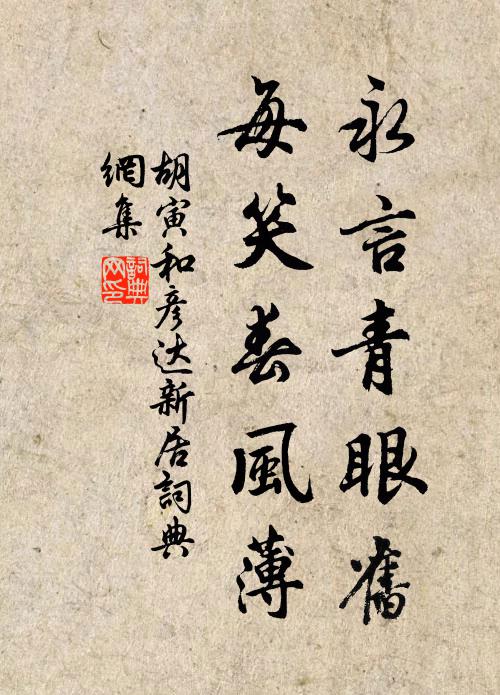 永言青眼舊
每笑春風薄
胡寅和彥达新居詞典
網集
詞典網印